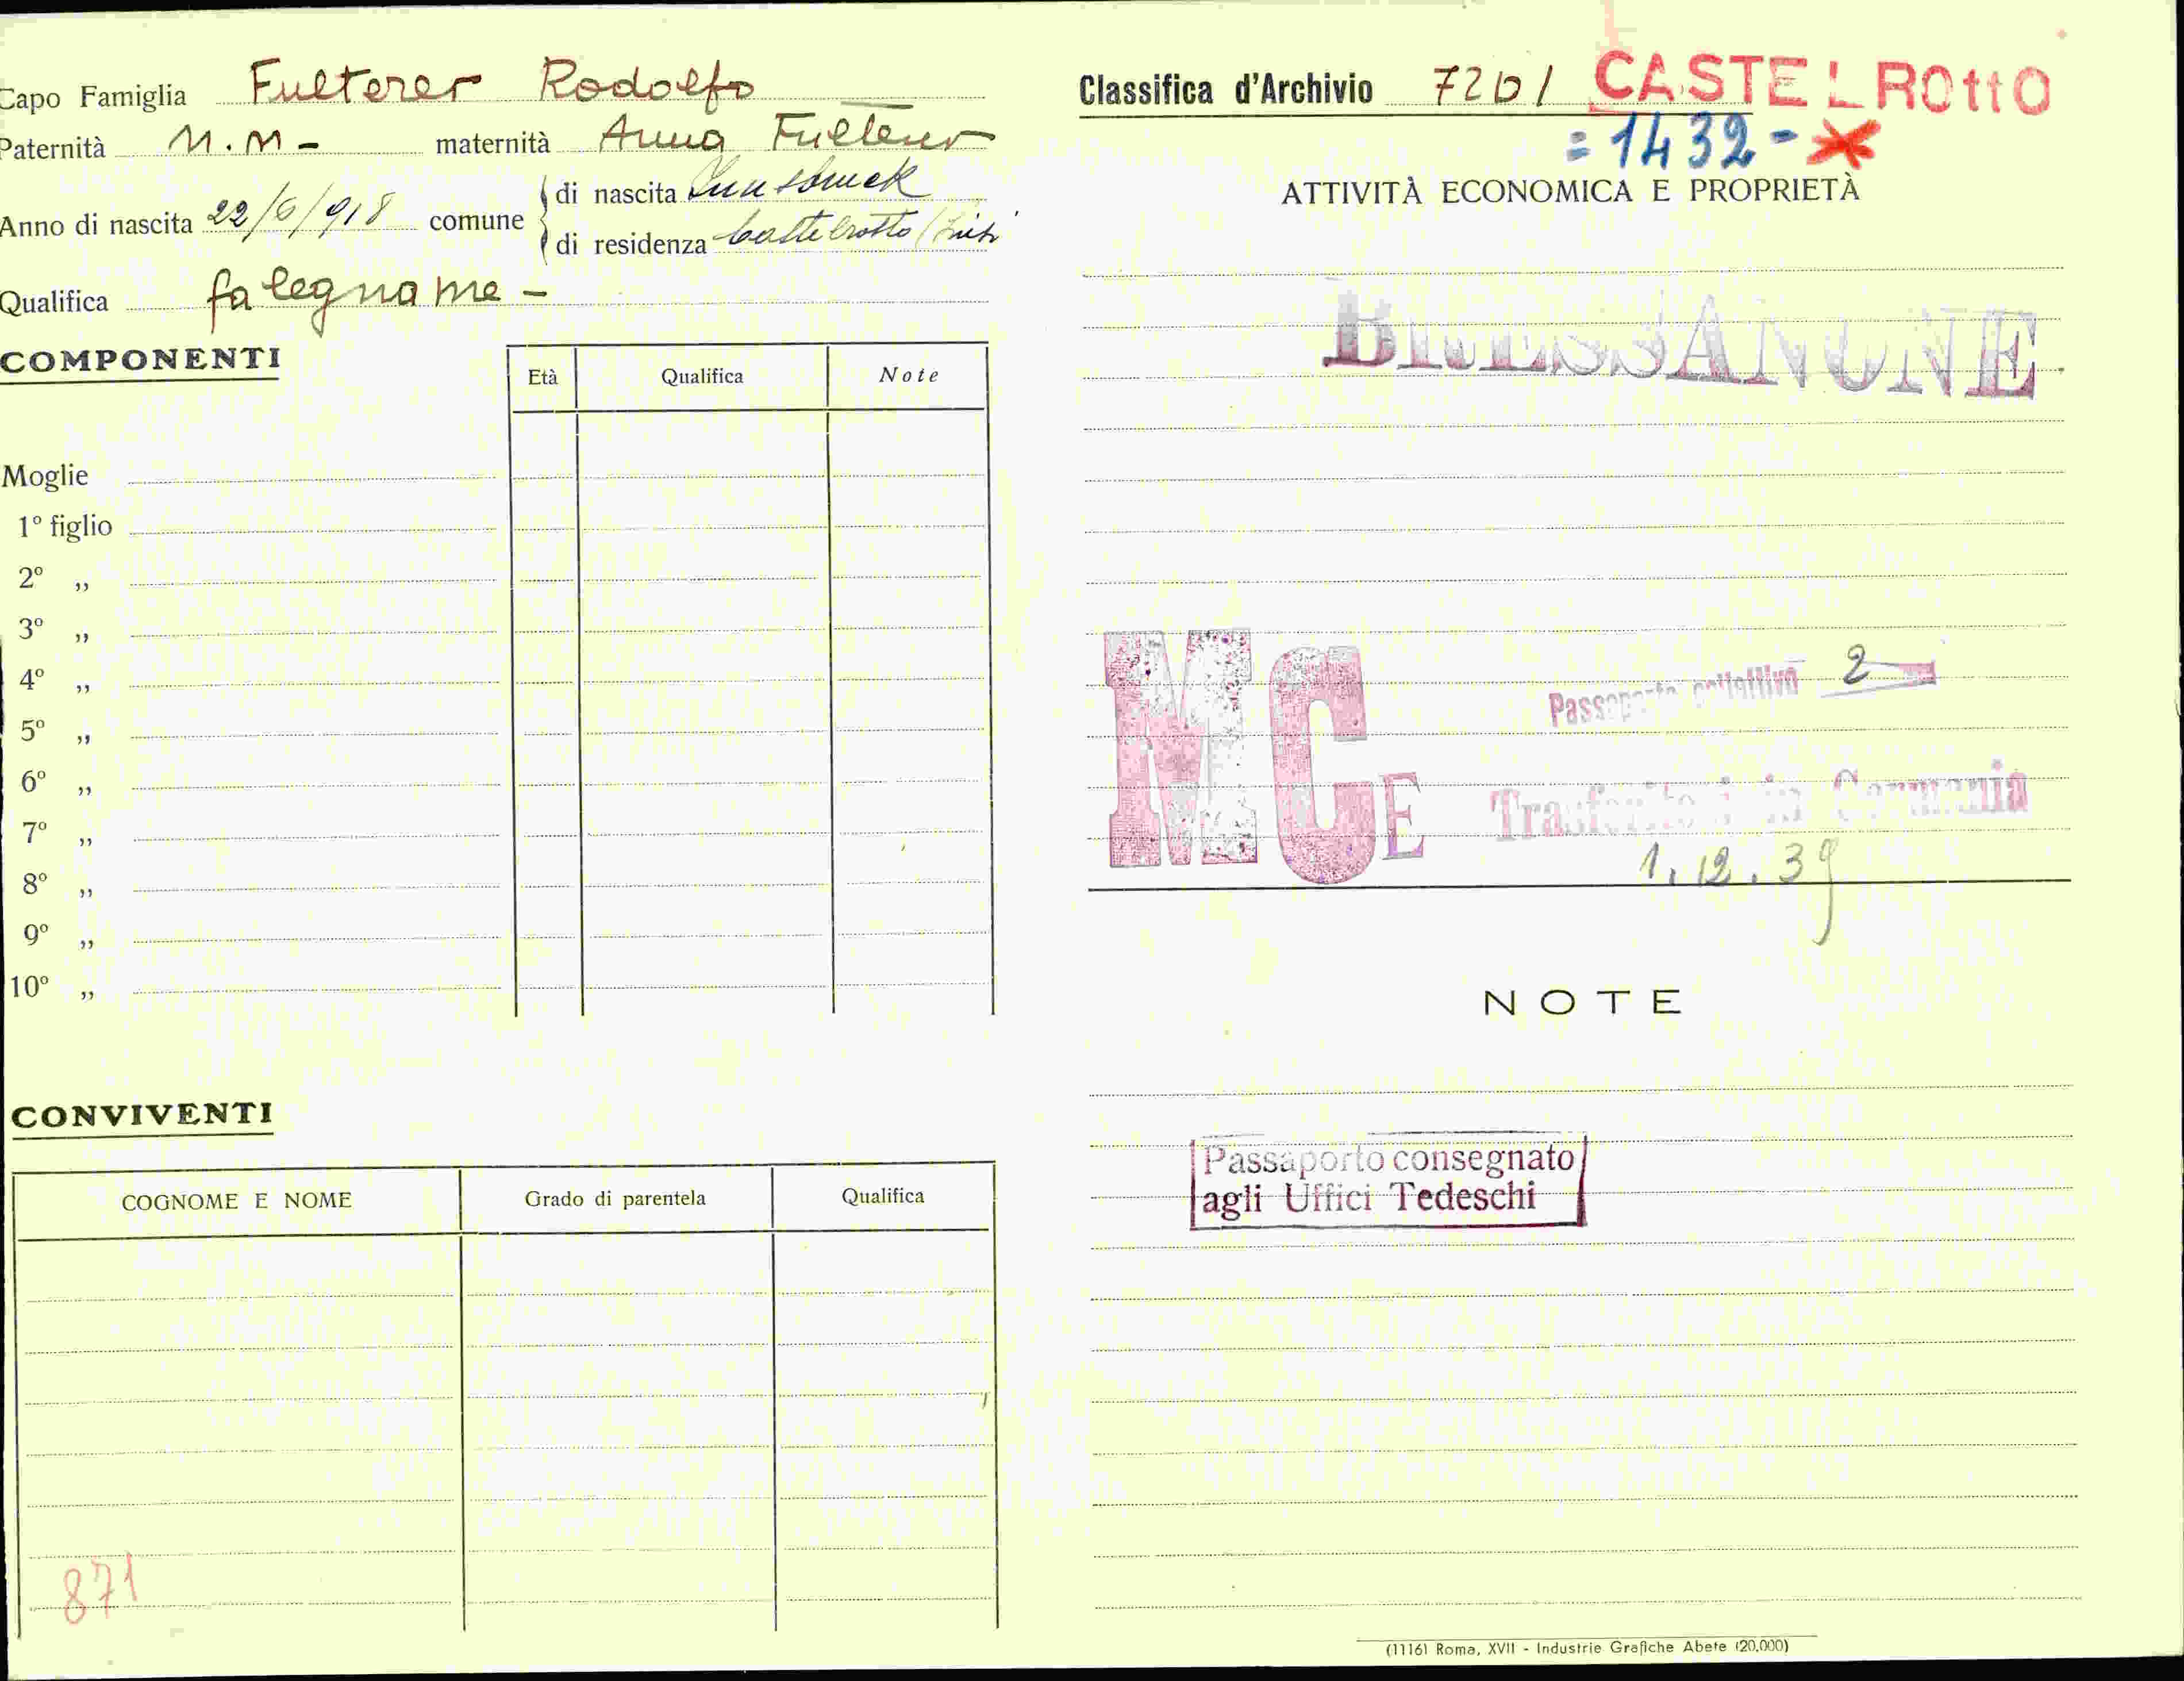 Capo Famiglia Fulterer Rodolfo
Paternità N. N - maternità Anna Fulterer
Anno di nascita 22/6/918 comune di nascita Innsbruck
di residenza Castelrotto
Qualifica falegname -
COMPONENTI
Età Qualifica Note
Moglie
1º figlio
2º „
3º „
4º „
5º „
6º „
7º „
8º „
9º „
10º „
CONVIVENTI
COGNOME E NOME Grado di parentela Qualifica
871
Classifica d'Archivio 7201 CASTELROttO
= 1432 -
ATTIVITÀ ECONOMICA E PROPRIETÀ
BRESSANONE
Passaporto collettivo 2
MCE Trasferitosi in Germania
1.12.39
NOTE
Passaporto consegnato
agli Uffici Tedeschi
(1116) Roma, XVII - Industrie Grafiche Abete (20.000)